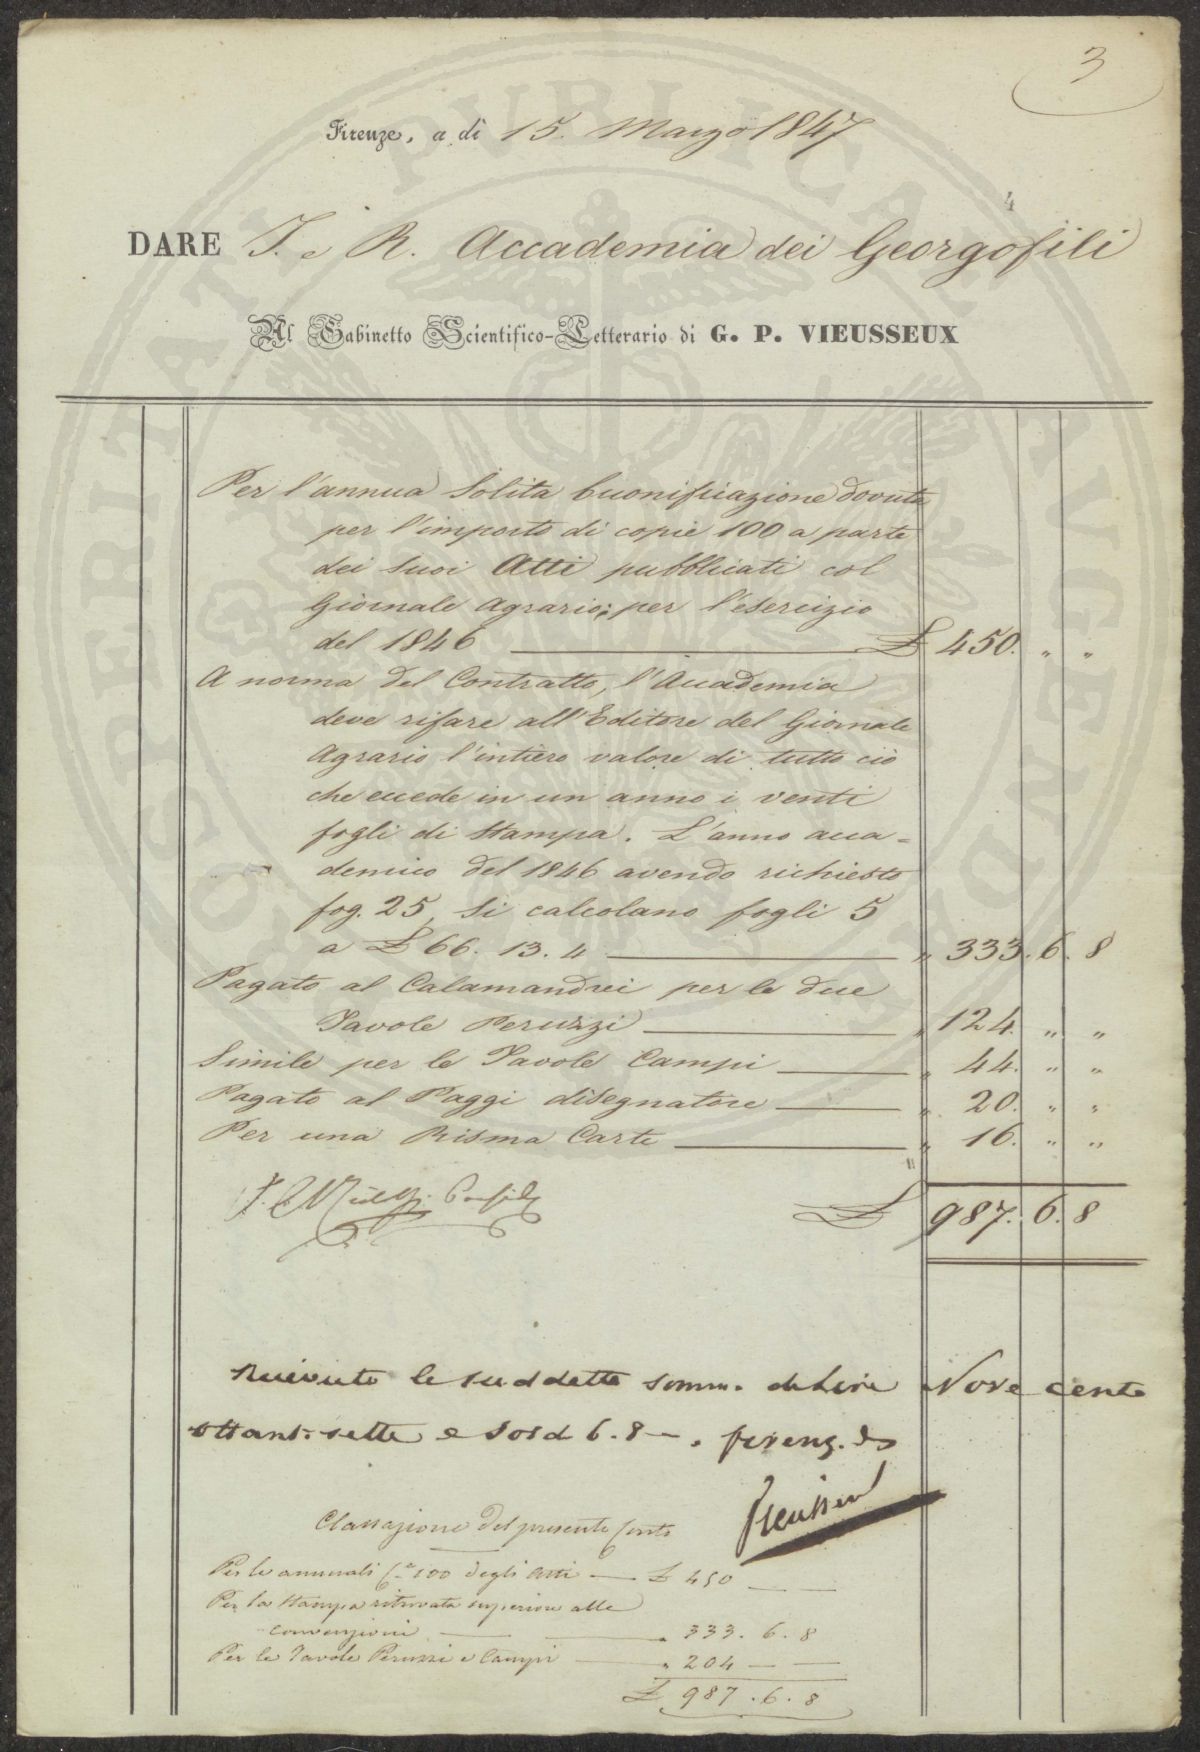 3
Firenze, a di 15. Marzo 1847
4
DARE I. e R. Accademia dei Georgofili
Al Gabinetto Scientifico-Letterario di G. P. VIEUSSEUX
PROSPERITATI PUBLICAE AUGENDAE
Per l'annua solita buonificazione dovuta
per l'importo di copie 100 a parte
dei suoi Atti pubblicati col
Giornale Agrario; per l'esercizio
del 1846 £ 450. " "
A norma del Contratto, l'Accademia
deve rifare all'Editore del Giornale
Agrario l'intiero valore di tutto ciò
che eccede in un anno i venti
fogli di stampa. L'anno acca=
demico del 1846 avendo richiesto
fog. 25, si calcolano fogli 5
a £ 66. 13. 4 " 333. 6. 8
Pagato al Calamandrei per le due
Tavole Peruzzi " 124. " "
Simile per le Tavole Campi " 44. " "
Pagato al Paggi disegnatore " 20. " "
Per una Risma Carta " 16. " "
£ 987. 6. 8
Ricevuto la suddetta somm. di Lire Nove cento
ottant. sette e sold 6. 8 — . firenz. ds
Vieusseux
Classazione del presente Conto
Per le annuali Ce 100 degli Atti — £ 450 — —
Per la stampa ritrovata superiore alle
convenzioni — " 333. 6. 8
Per le Tavole Peruzzi e Campi — " 204 — —
£ 987. 6. 8